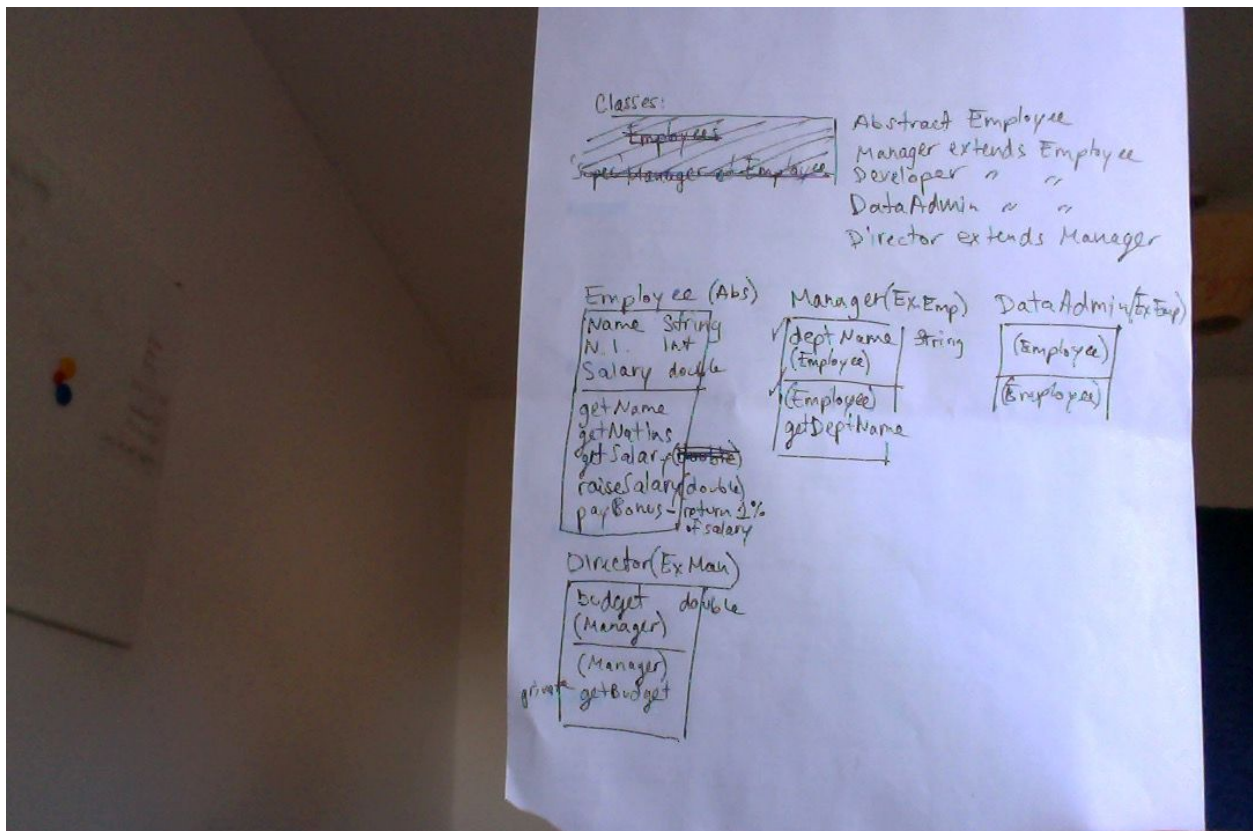 Classes:
Employees
'Super' Manager of Employee
Abstract Employee
Manager extends Employee
Developer " "
DataAdmin " "
Director extends Manager
Employee (Abs)
Name Sstring
N.I. Int
Salary double
getName
getNatIns
getSalary (double)
raiseSalary (double)
payBonus - return 1%
of salary
Manager (Ex.Emp)
deptName String
(Employee)
(Employee)
getDeptName
DataAdmin (Ex Emp)
(Employee)
(Employee)
Director (Ex Man)
Budget double
(Manager)
(Manager)
private getBudget